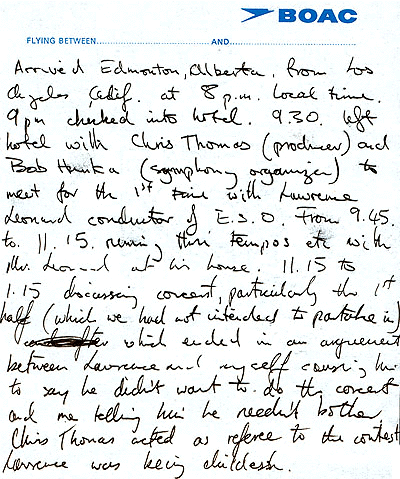 BOAC
FLYING BETWEEN.................................AND.................................
Arrived Edmonton, Alberta, from Los
Angeles Calif. at 8 p.m. local time.
9pm checked into hotel. 9.30. left
hotel with Chris Thomas (producer) and
Bob Hunka (symphony organizer) to
meet for the 1st time with Lawrence
Leonard conductor of E.S.O. From 9.45.
to 11.15. running thru tempos etc with
Mr. Leonard at his house. 11.15 to
1.15 discussing concert, particularly the 1st
half (which we had not intended to partake in)
which ended in an arguement
between Lawrence and myself causing him
to say he didn't want to do the concert
and me telling him he needn't bother.
Chris Thomas acted as referee to the contest
Lawrence was being childish.